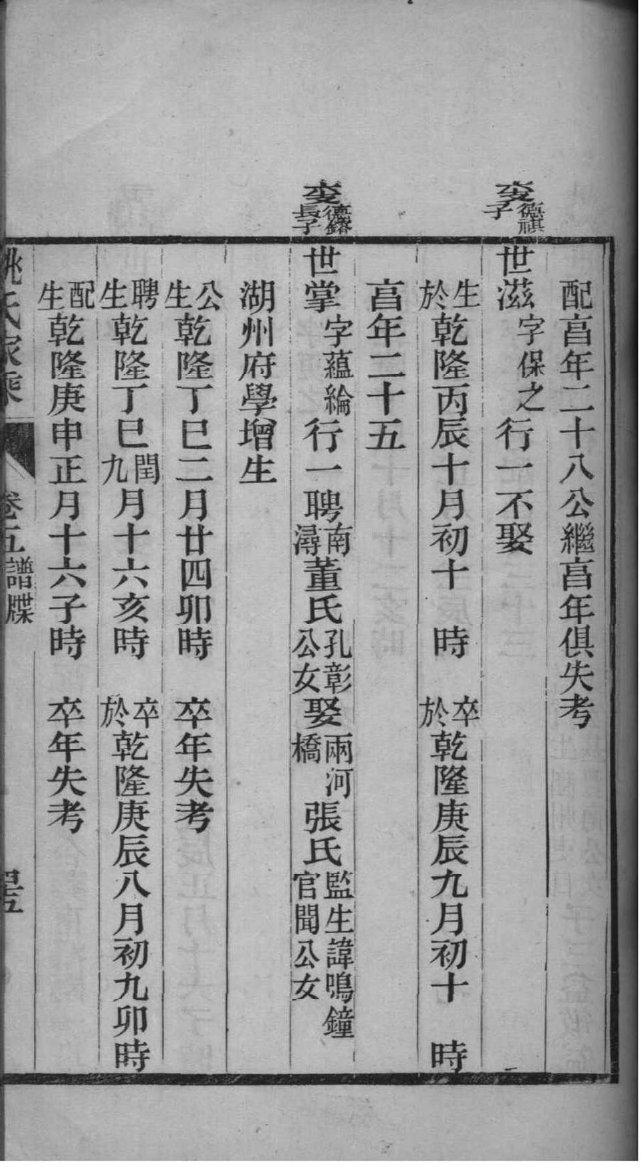 配亯年二十八公繼亯年俱失考
德祺子
世滋字保之行一不娶
生於乾隆丙辰十月初十 時 卒於乾隆庚辰九月初十 時
亯年二十五
長子
世掌字蘊綸行一聘南潯董氏孔彰公女娶兩河橋張氏監生諱鳴鐘官聞公女
湖州府學增生
公生乾隆丁巳二月廿四卯時 卒年失考
聘生乾隆丁巳閏九月十六亥時 卒於乾隆庚辰八月初九卯時
配生乾隆庚申正月十六子時 卒年失考
姚氏家乘 卷五譜牒